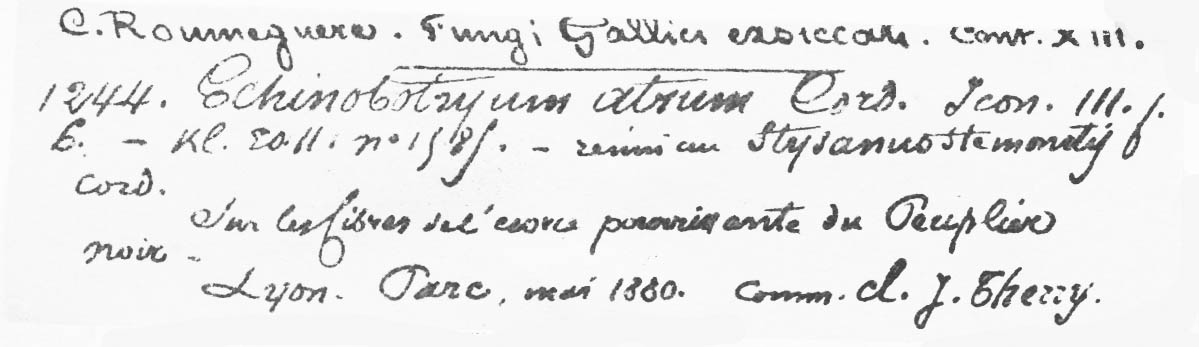 C. Roumeguere. Fungi Gallici exsiccati. Cent. XIII.
1244. Echinobotryum atrum Cord. Icon. III. f.
6. – Kl. no. – réuni au Stysanus Stemonitis
Cord.
Sur les fibres de l'écorce pourrissante du Peuplier
noir –
Lyon. Parc, mai 1880. Comm. Cl. J. Therry.